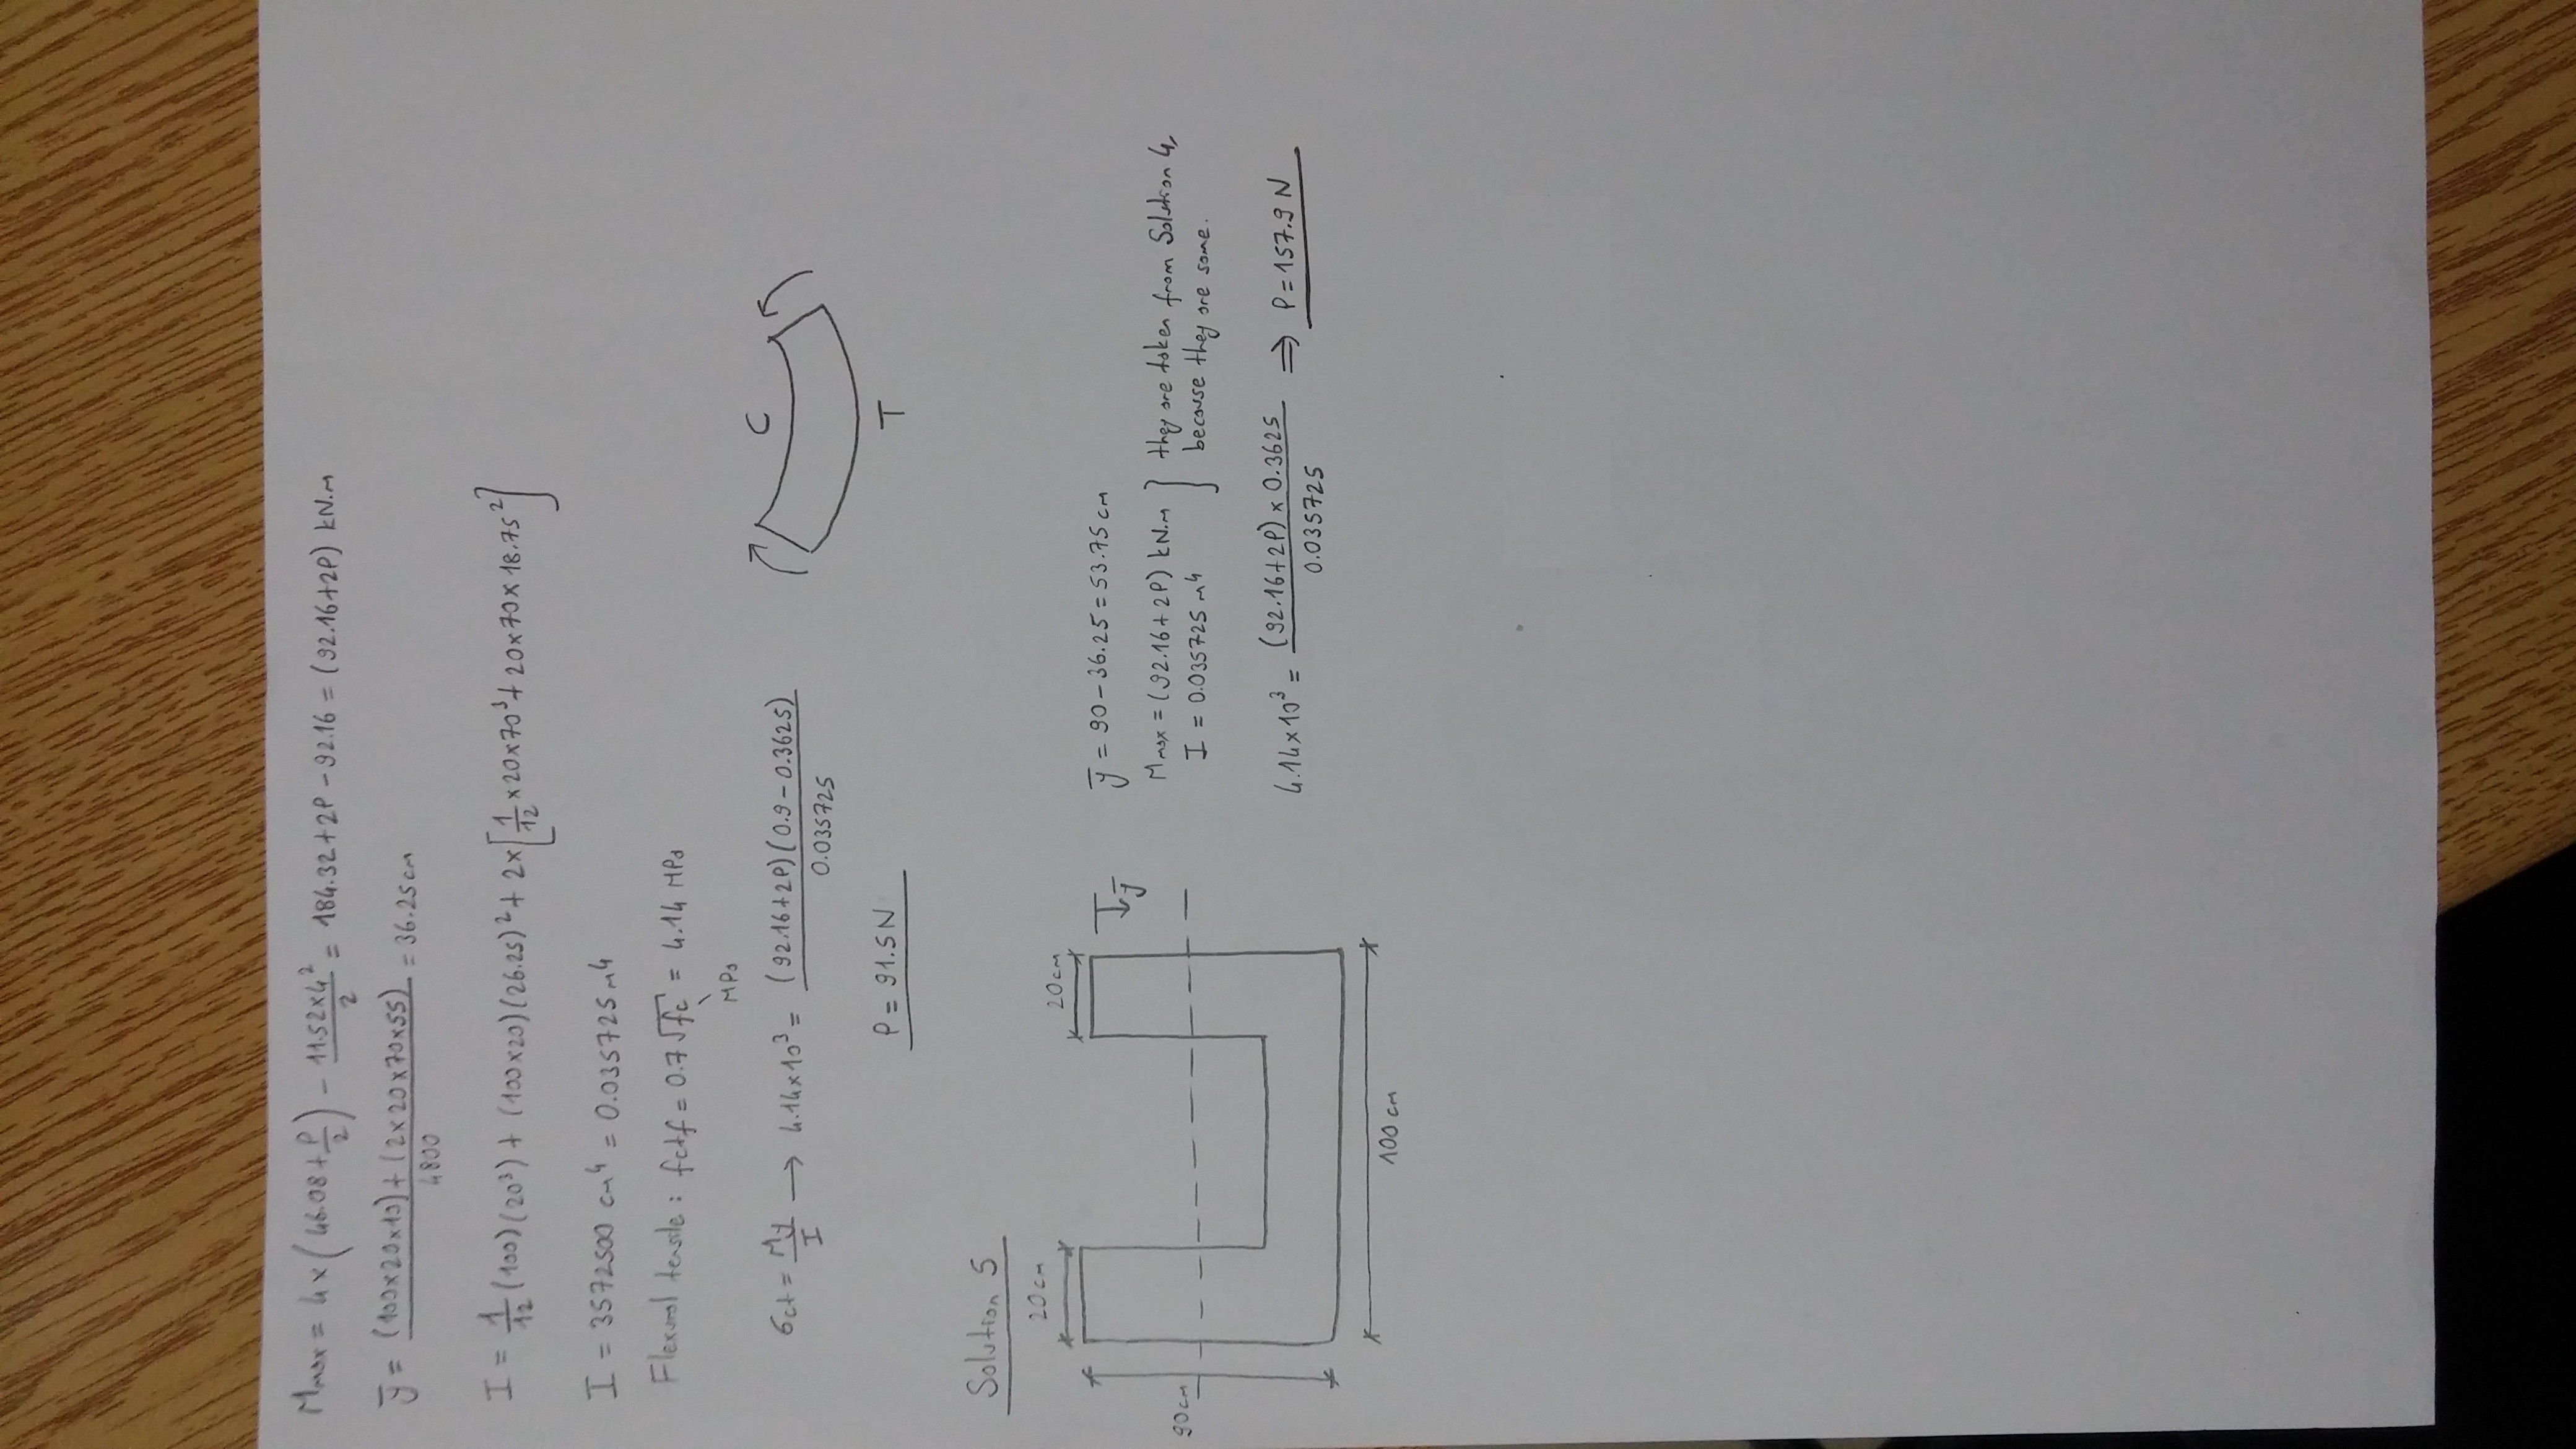 Mmax = 4 x (46.08 + P/2) - 11.52x4²/2 = 184.32 + 2P - 92.16 = (92.16+2P) kN.m
ȳ = (100x20x10) + (2x20x70x55) / 4800 = 36.25 cm
I = 1/12 (100)(20³) + (100x20)(26.25)² + 2x[1/12 x 20x70³ + 20x70x18.75²]
I = 3572500 cm⁴ = 0.035725 m⁴
Flexural tensile : fctf = 0.7√fc = 4.14 MPa
MPa
σct = My/I → 4.14x10³ = (92.16+2P)(0.9-0.3625) / 0.035725
C
T
P = 91.5 N
Solution 5
20cm
20cm
ȳ
90cm
100 cm
ȳ = 90 - 36.25 = 53.75 cm
Mmax = (92.16+2P) kN.m } they are taken from Solution 4,
I = 0.035725 m⁴ because they are same.
4.14x10³ = (92.16+2P) x 0.3625 / 0.035725 ⇒ P = 157.9 N